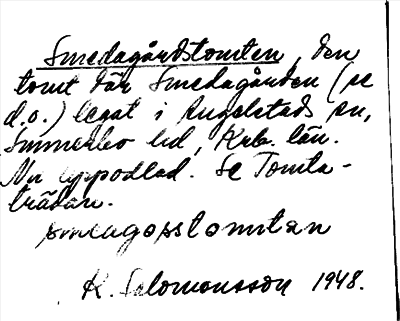 Smedagårdstomten, den
tomt där Smedagården (se
d.o.) legat i Angelstads sn,
Sunnerbo hd, Krb. län.
Nu uppodlad. Se Tomta-
trädan.
smeagosstomtan
K. Salomonsson 1948.